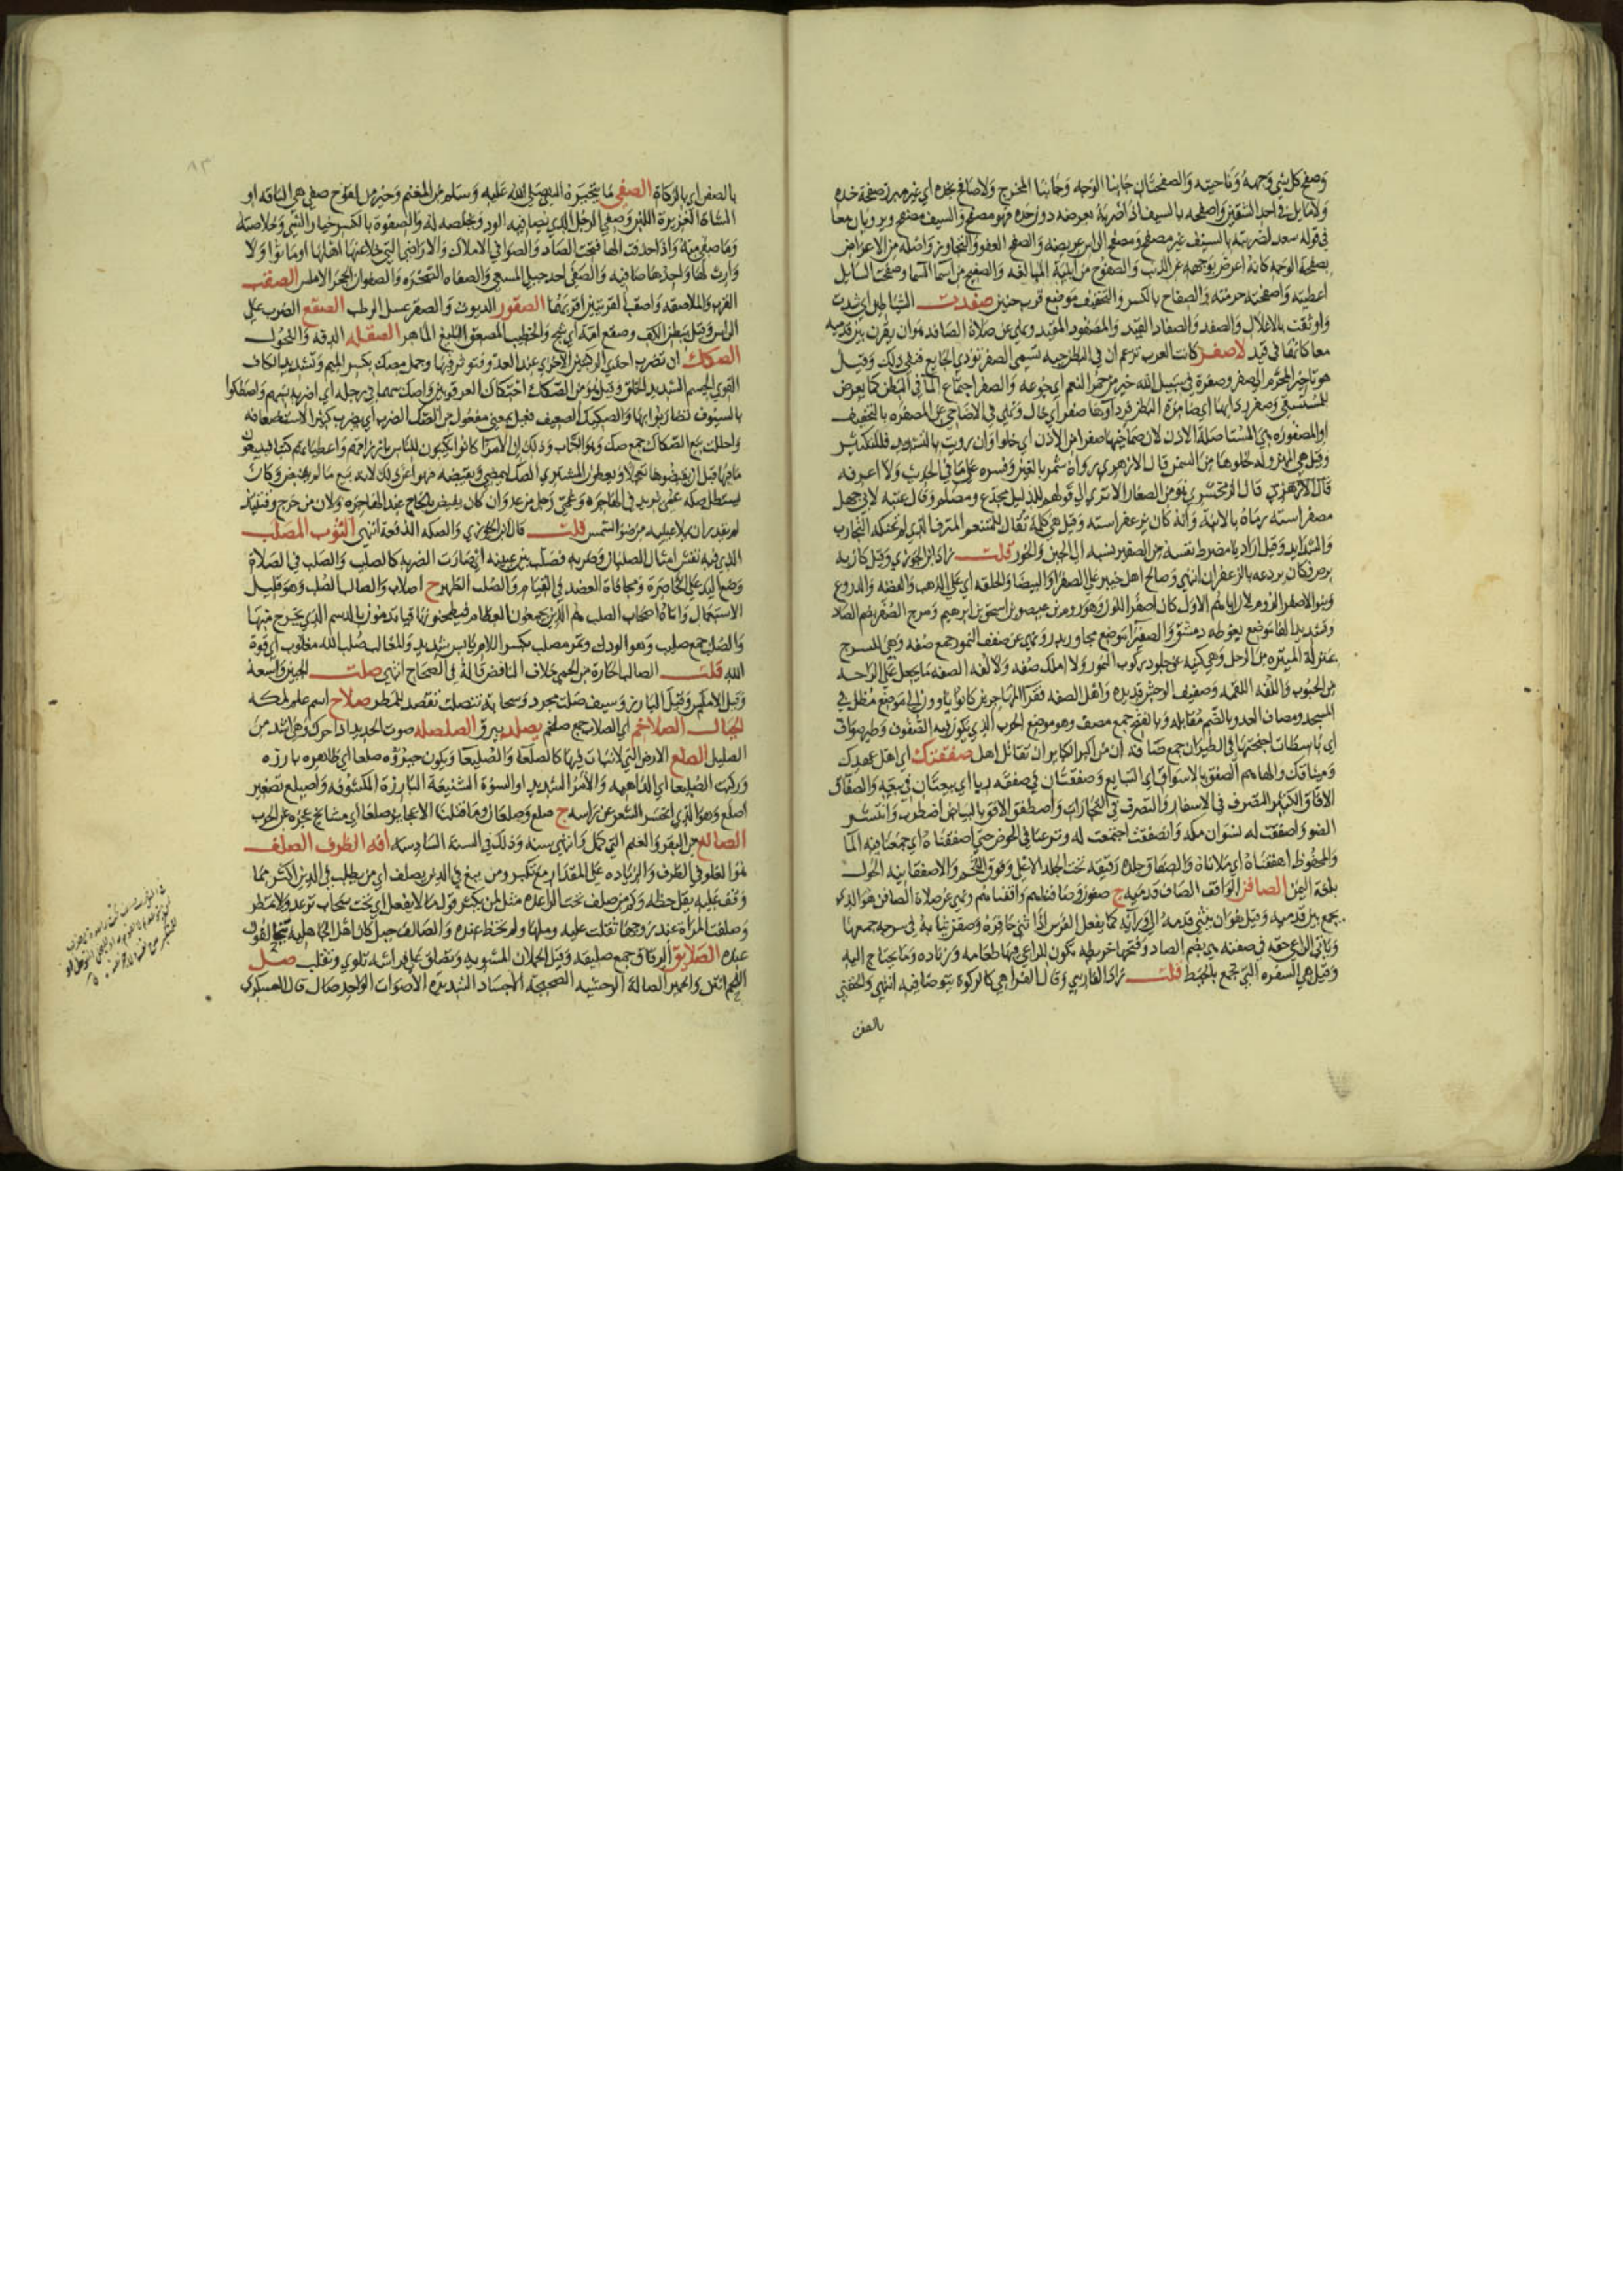 وصفح كل شي وجهه وناحيته والصفحتان جانبا الوجه وجانبا المخرج ولا صافح بخده اي غير مبرز صفحة خده
ولا مايل في احد الشقين واصفحه بالسيف اذا ضربه بعرضه دون حده فهو مصفح والسيف مصفح ويرويان معا
في قوله سعد لضربته بالسيف غير مصفح ومصفح الراس عريضه والصفح العفو والتجاوز واصله من الاعراض
بصفحة الوجه كانه اعرض بوجهه عن الذنب والصفوح من ابنية المبالغه والصفيح من اسما السما وصفحت السايل
اعطيته واصفحته حرمته والصفاح بالكسر والتخفيف موضع قرب حنين صفدت الشياطين اي شدت
واوثقت بالاغلال والصفد والصفاد القيد والمصفود المقيد ونهي عن صلاة الصافد هو ان يقرن بين قدميه
معا كانهما في قيد لا صفر كانت العرب تزعم ان في البطن حيه تسمى الصفر تؤذي الجايع فنفى ذلك وقيل
هو تاخير المحرم الى صفر وصفرة في سبيل الله خير من حمر النعم اي جوعه والصفر اجتماع الما في البطن كما يعرض
للمستسقي وصفر ردايها اي ضامرة البطن فرداوها صفر اي خال ونهي في الاضاحي عن المصفره بالتخفيف
او المصفوره هي المستاصلة الاذن لان صماخيها صفرا من الاذن اي خلوا وان رويت بالتشديد فللتكثير
وقيل هي المهزوله لخلوها من السمن قال الازهري رواه شمر بالغين وفسره على ما في الحديث ولا اعرفه
قال الزمخشري هو من الصغار الا تري الي قولهم للذليل مجدع ومصلم وقال عتبه لابي جهل
مصفر استه رماه بالابنة وانه كان يزعفر استه وقيل هي كلمة تقال للمتنعم المترف الذي لم تحنكه التجارب
والشدايد وقيل اراد يا مضرط نفسه من الصفير نسبه الي الجبن والخور قلت زاد ابن الجوزي وقيل كان به
برص فكان يردعه بالزعفران انتهي وصالح اهل خيبر علي الصفرا والبيضا والحلقه اي علي الذهب والفضه والدروع
وبنو الاصفر الروم لان اباهم الاول كان اصفر اللون وهو روم بن عيصو بن اسحق بن ابرهيم ومرج الصفر بضم الصاد
وتشديد الفا موضع بغوطه دمشق والصفيرا موضع مجاور بدر ونهي عن صفف النمور جمع صفه وهي للسرج
بمنزلة الميثره من الرحل وهي كنهيه عن جلود ركوب النمور ولا املك صفه ولا لفه الصفه ما يجعل علي الراحه
من الحبوب واللفه اللقمه وصفيف الوحش قديده واهل الصفه فقرا المهاجرين كانوا ياوون الي موضع مظلل في
المسجد ومصاف العدو بالضم مقابله وبالفتح جمع مصف وهو موضع الحرب الذي يكون فيه الصفوف وطير صواف
اي باسطات اجنحتها في الطيران جمع صافه ان من اكبر الكباير ان تقاتل اهل صفقتك اي اهل عهدك
وميثاقك والهاهم الصفق بالاسواق اي التبايع وصفقتان في صفقه ربا اي بيعتان في بيعه والصفاق
الافاق الكثير التصرف في الاسفار والتصرف في التجارات واصطفق الافق بالبياض اضطرب وانتشر
الضو واصفقت له نسوان مكه وانصفقت اجتمعت له ونزعنا في الحوض حتي اصفقناه اي جمعنا فيه الما
والمحفوظ افهقناه اي ملاناه والصفاق جلدة رقيقه تحت الجلد الاعلى وفوق اللحم والاصفقانيه الخول
بلغة اليمن الصافن الواقف الصاف قدميه ج صفون وصافناهم واقفناهم ونهي عن صلاة الصافن هو الذي
يجمع بين قدميه وقيل هو ان يثني قدمه الي ورائه كما يفعل الفرس اذا ثنى حافره وصفن ثيابه في سرجه جمعها
وياتي الراعي حقه في صفنه هي بضم الصاد وفتحها خريطه تكون للراعي فيها طعامه وزناده وما يحتاج اليه
وقيل هي السفره التي تجمع بالخيط قلت زاد الفارسي وقال الفرا هي كالركوة يتوضا فيه انتهي والحقني
بالصفن
بالصفن اي بالركاة الصفي ما يتخيره النبي صلي الله عليه وسلم من المغنم وخير من لقوح صفي هي الناقه او
الشاة الغزيرة اللبن وصفي الرجل الذي يصافيه الود ويخلصه له والصفوة بالكسر خيار الشي وخلاصته
وما صفي منه واذا حذفت الها فتحت الصاد والصوافي الاملاك والاراضي التي خلا عنها اهلها او ماتوا ولا
وارث لها واحدها صافيه والصفى احد جبلي المسعى والصفاه الصخره والصفوان الحجر الاملس الصقب
القرب والملاصقه واصقب القريتين اقربهما الصقور الديوث والصقر عسل الرطب الصقع الضرب علي
الراس وقيل ببطن الكف وصقع امة اي شج والخطيب المصقع البليغ الماهر الصقله الدقه والنحول
الصكك ان تضرب احدي الركبتين الاخري عند العدو فتوثر فيهما وجمل مصك بكسر الميم وتشديد الكاف
القوي الجسيم الشديد الخلق وقيل هو من الصكك احتكاك العرقوبين واصك سهما في رجله اي اضربه بسهم واصطكوا
بالسيوف تضاربوا بها والصكيك الضعيف فعيل بمعنى مفعول من الصك الضرب اي يضرب كثيرا لاستضعافه
واحللت بيع الصكاك جمع صك وهو الكتاب وذلك ان الامرا كانوا يكتبون للناس بارزاقهم واعطياتهم كتبا فيبيعون
ما فيها قبل ان يقبضوها تعجلا ويعطون المشتري الصك ليمضي ويقبضه فنهوا عن ذلك لانه بيع ما لم يقبض وكان
يستظل بصكة عمي يريد في الهاجره وعمي رجل من عدوان كان يفيض بالحاج عند الهاجره ولان من خرج وقتئذ
لم يقدر ان يملا عينيه من ضو الشمس قلت قال ابن الجوزي والصكه الدفعة انتهي الثوب المصلب
الذي فيه نقش امثال الصلبان وضربه فصلب بين عينيه اي صارت الضربه كالصليب والصلب في الصلاة
وضع اليد علي الخاصرة ومجافاة العضد في القيام والصلب الظهر ج اصلاب والصالب الصلب وهو قليل
الاستعمال واتاه اصحاب الصلب هم الذين يجمعون العظام فيطبخونها فياتدمون بالدسم الذي يخرج منها
والصلب جمع صليب وهو الودك وتمر مصلب بكسر اللام يابس شديد والمغالب صلب الله مغلوب اي قوة
الله قلت الصالب الحارة من الحمي خلاف النافض قاله في الصحاح انتهي صلت الجبين واسعه
وقيل الاملس وقيل البارز وسيف صلت مجرد وسحابة تنصلت تقصد للمطر صلاح اسم علم لمكه
الجبال الصلاخم اي الصلاب جمع صلخم يصلد يبرق الصلصله صوت الحديد اذا حرك وهي اشد من
الصليل الصلع الارض التي لا نبات فيها كالصلعا والصليعا ويكون جبروه صلعا اي ظاهره بارزه
وركبت الصليعا اي الداهيه والامر الشديد او السوة الشنيعة البارزة المكشوفه واصيلع تصغير
اصلع وهو الذي انحسر الشعر عن راسه ج صلع وصلعان وما قتلنا الا عجايز صلعا اي مشايخ عجزه عن الحرب
الصالغ من البقر والغنم التي كمل وانتهي سنه وذلك في السنة السادسه افة الظرف الصلف
هو الغلو في الظرف والزياده علي المقدار مع تكبر ومن يبغ في الدين يصلف اي من يطلب في الدين اكثر مما
وقف عليه يقل حظه وكم من صلف تحت الراعده مثل لمن يكثر قول ما لا يفعل اي تحت سحاب ترعد ولا تمطر
وصلفت المراة عند زوجها ثقلت عليه وملها ولم تحظ عنده والصالف جبل كان اهل الجاهلية يتحالفون
عنده الصلايق الرقاق جمع صليقه وقيل الحملان المشويه وتصلق علي فراشه تلوي وتقلب صل
اللحم انتن والحمير الصالة الوحشيه الصحيحة الاجساد الشديدة الاصوات الواحد صال قال العسكري